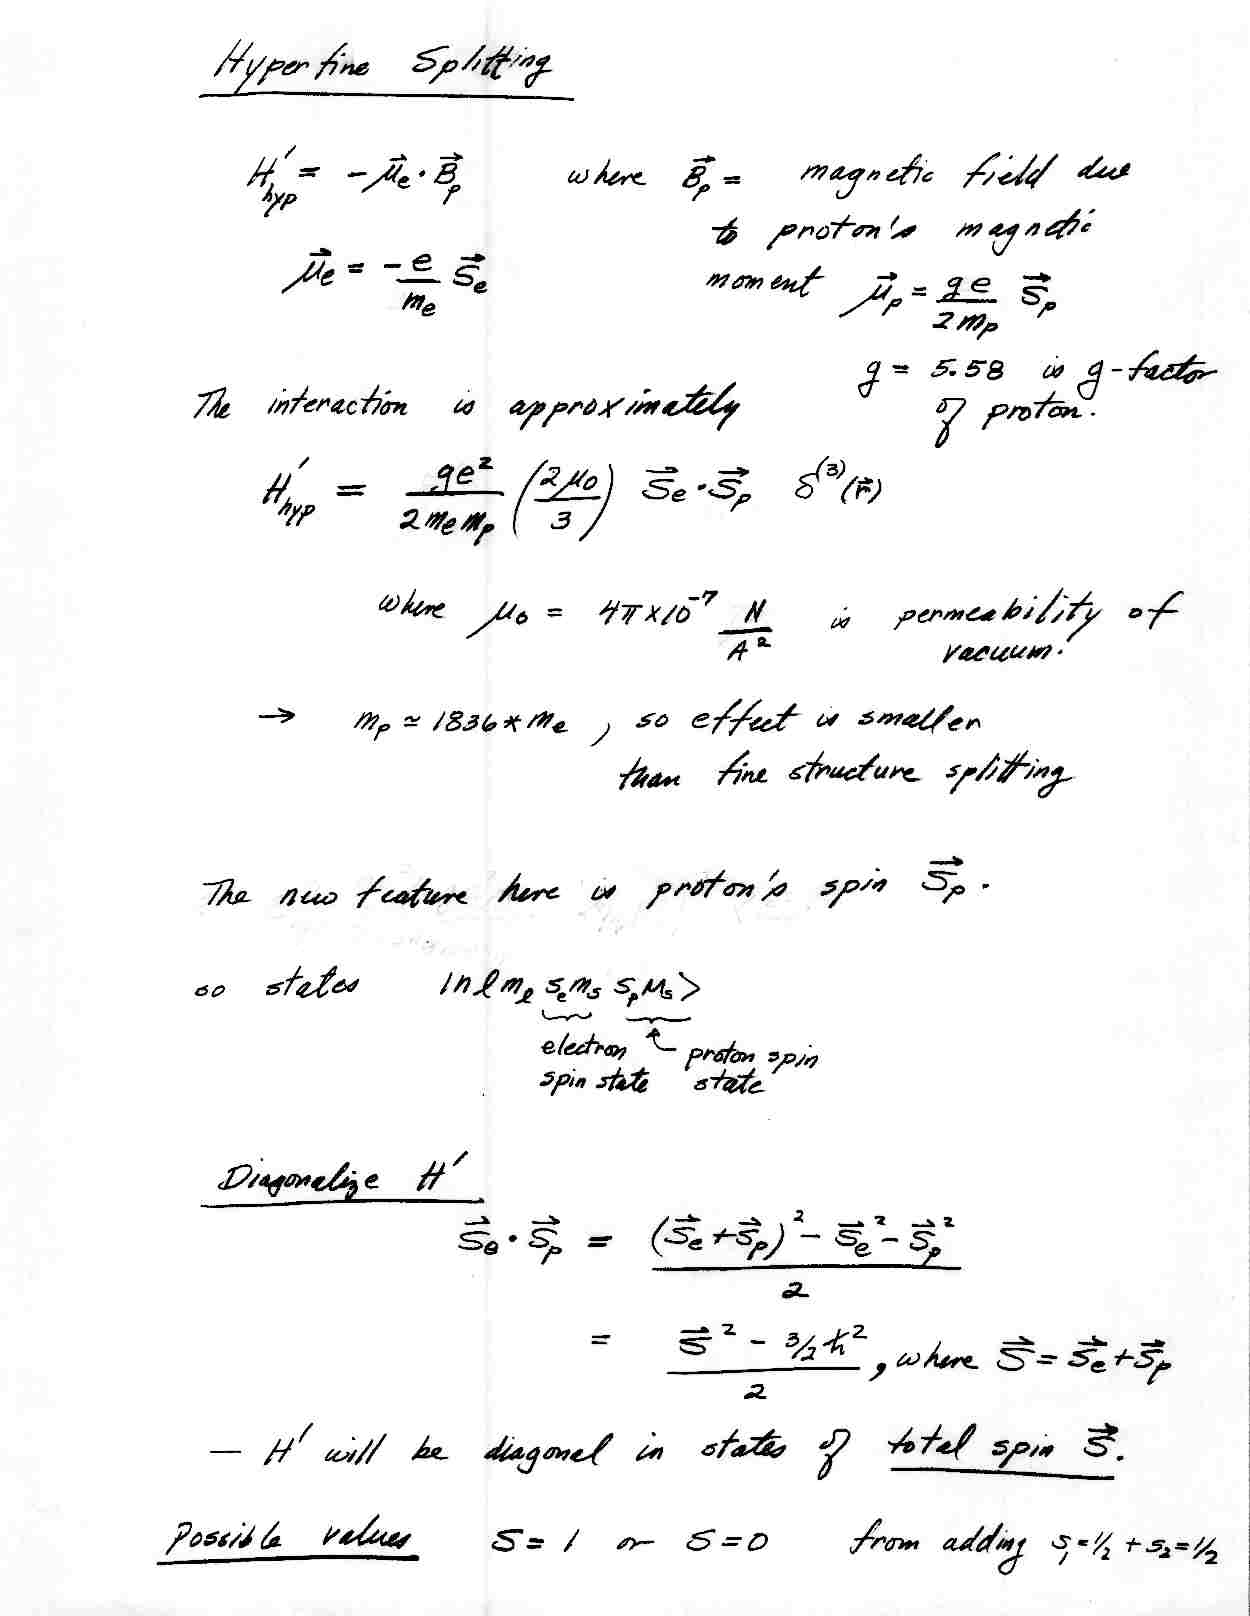 Hyperfine Splitting
H'hyp = -μ⃗e·B⃗p where B⃗p = magnetic field due
to proton's magnetic
μ⃗e = -e/me S⃗e moment μ⃗p = ge/2mp S⃗p
g = 5.58 is g-factor
The interaction is approximately of proton.
H'hyp = ge²/2memp (2μ0/3) S⃗e·S⃗p δ⁽³⁾(r⃗)
where μ0 = 4π×10⁻⁷ N/A² is permeability of
vacuum.
→ mp ≃ 1836*me, so effect is smaller
than fine structure splitting
The new feature here is proton's spin S⃗p.
so states |n l ml se ms sp Ms>
electron proton spin
spin state state
Diagonalize H'
S⃗e·S⃗p = (S⃗e+S⃗p)² - S⃗e² - S⃗p² / 2
= S⃗² - 3/2 ħ² / 2, where S⃗ = S⃗e+S⃗p
— H' will be diagonal in states of total spin S⃗.
Possible values S=1 or S=0 from adding s1=1/2 + s2=1/2